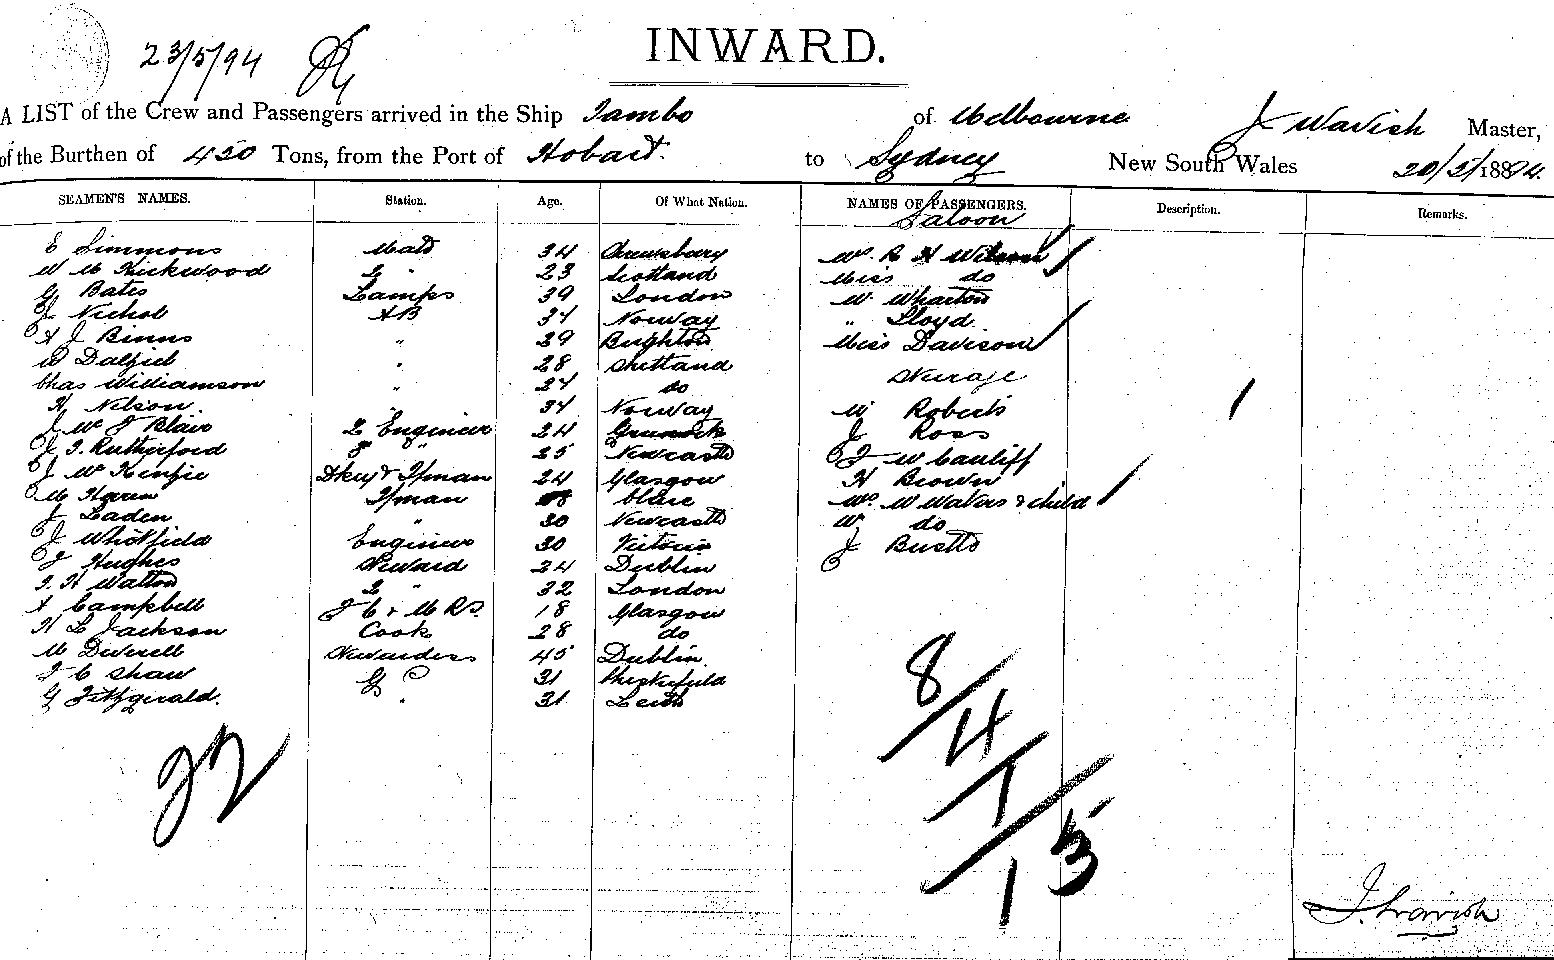 23/5/94
INWARD.
A LIST of the Crew and Passengers arrived in the Ship Tambo of Melbourne J Wavish Master,
of the Burthen of 450 Tons, from the Port of Hobart. to Sydney New South Wales 20/5/1894.
SEAMEN'S NAMES. Station. Age. Of What Nation. NAMES OF PASSENGERS. Description. Remarks.
Saloon
E Simmons Mate 34 Shrewsbury Mrs R H Wilson
W M Kirkwood 2 " 23 Scotland Miss do
G Bates Lamps 39 London Mr Wharton
J Nichol AB 34 Norway " Lloyd
A J Binns " 29 Brighton Miss Davison
W Dalziel " 28 Shetland
Chas Williamson " 24 do Steerage
H Nelson. " 34 Norway Mr Roberts
J Mc J Blair 2 Engineer 24 Greenock J Ross
J T. Rutherford 3 " 25 Newcastle J McCauliff
J McKenzie Dkey & Ffman 24 Glasgow H Brown
Ffman Clare Mrs W Waters & child
J Laden " 30 Newcastle Mr do
J Whitfield Engineer 30 Victoria J Butts
J Hughes Steward 24 Dublin
T. H Walton 2 " 32 London
A Campbell 18 Glasgow
H L Jackson Cook 28 do
M Deverell Stewardess 45 Dublin
J C Shaw 31
G Fitzgerald. " 31 Leith
22
8
4
1
1 3
J. Wavish